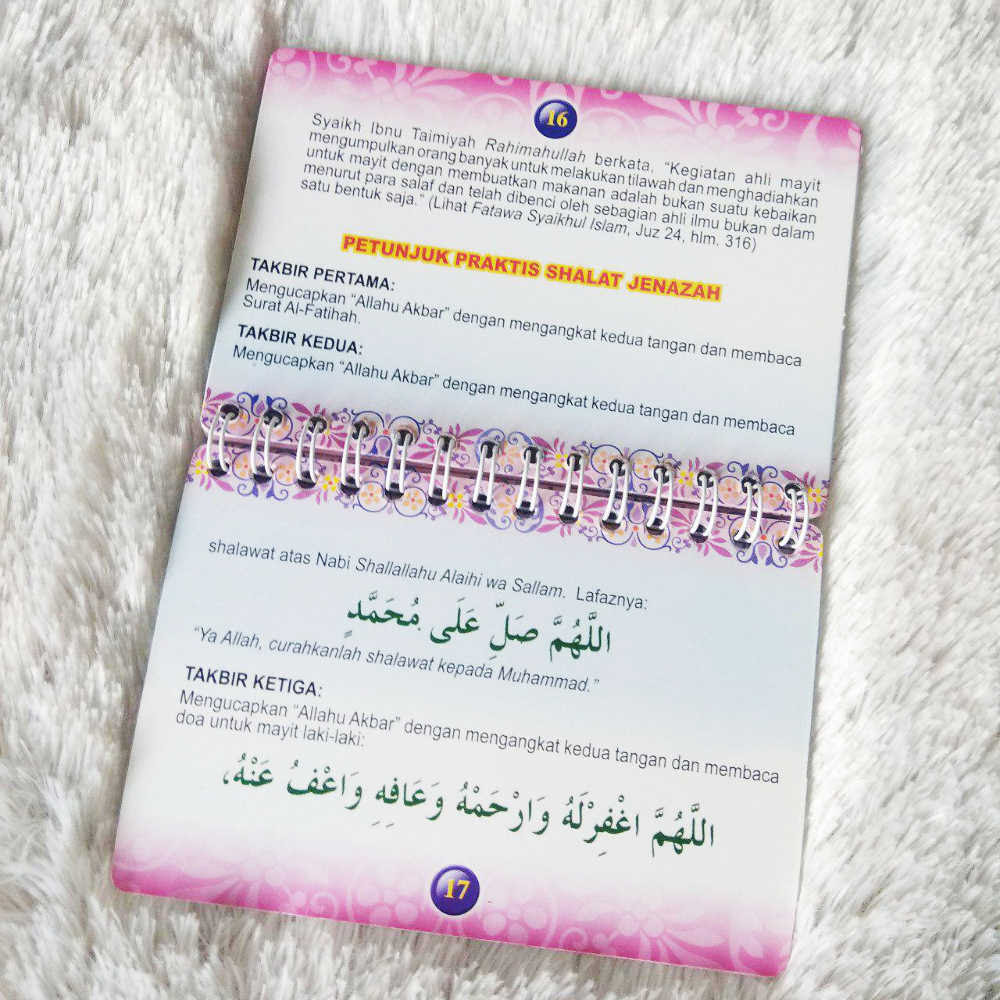 16
Syaikh Ibnu Taimiyah Rahimahullah berkata, “Kegiatan ahli mayit
mengumpulkan orang banyak untuk melakukan tilawah dan menghadiahkan
untuk mayit dengan membuatkan makanan adalah bukan suatu kebaikan
menurut para salaf dan telah dibenci oleh sebagian ahli ilmu bukan dalam
satu bentuk saja.” (Lihat Fatawa Syaikhul Islam, Juz 24, hlm. 316)
PETUNJUK PRAKTIS SHALAT JENAZAH
TAKBIR PERTAMA:
Mengucapkan “Allahu Akbar” dengan mengangkat kedua tangan dan membaca
Surat Al-Fatihah.
TAKBIR KEDUA:
Mengucapkan “Allahu Akbar” dengan mengangkat kedua tangan dan membaca
shalawat atas Nabi Shallallahu Alaihi wa Sallam. Lafaznya:
اللَّهُمَّ صَلِّ عَلَى مُحَمَّدٍ
“Ya Allah, curahkanlah shalawat kepada Muhammad.”
TAKBIR KETIGA:
Mengucapkan “Allahu Akbar” dengan mengangkat kedua tangan dan membaca
doa untuk mayit laki-laki:
اللَّهُمَّ اغْفِرْلَهُ وَارْحَمْهُ وَعَافِهِ وَاعْفُ عَنْهُ،
17